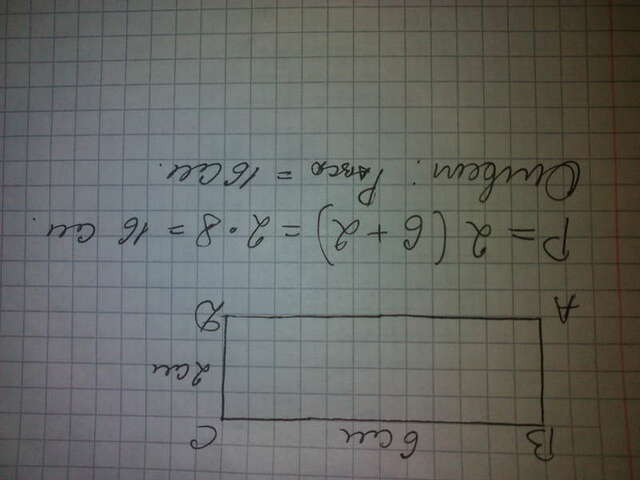 B 6 см C
2 см
A D
P = 2 (6 + 2) = 2 · 8 = 16 см.
Ответ: P_ABCD = 16 см.